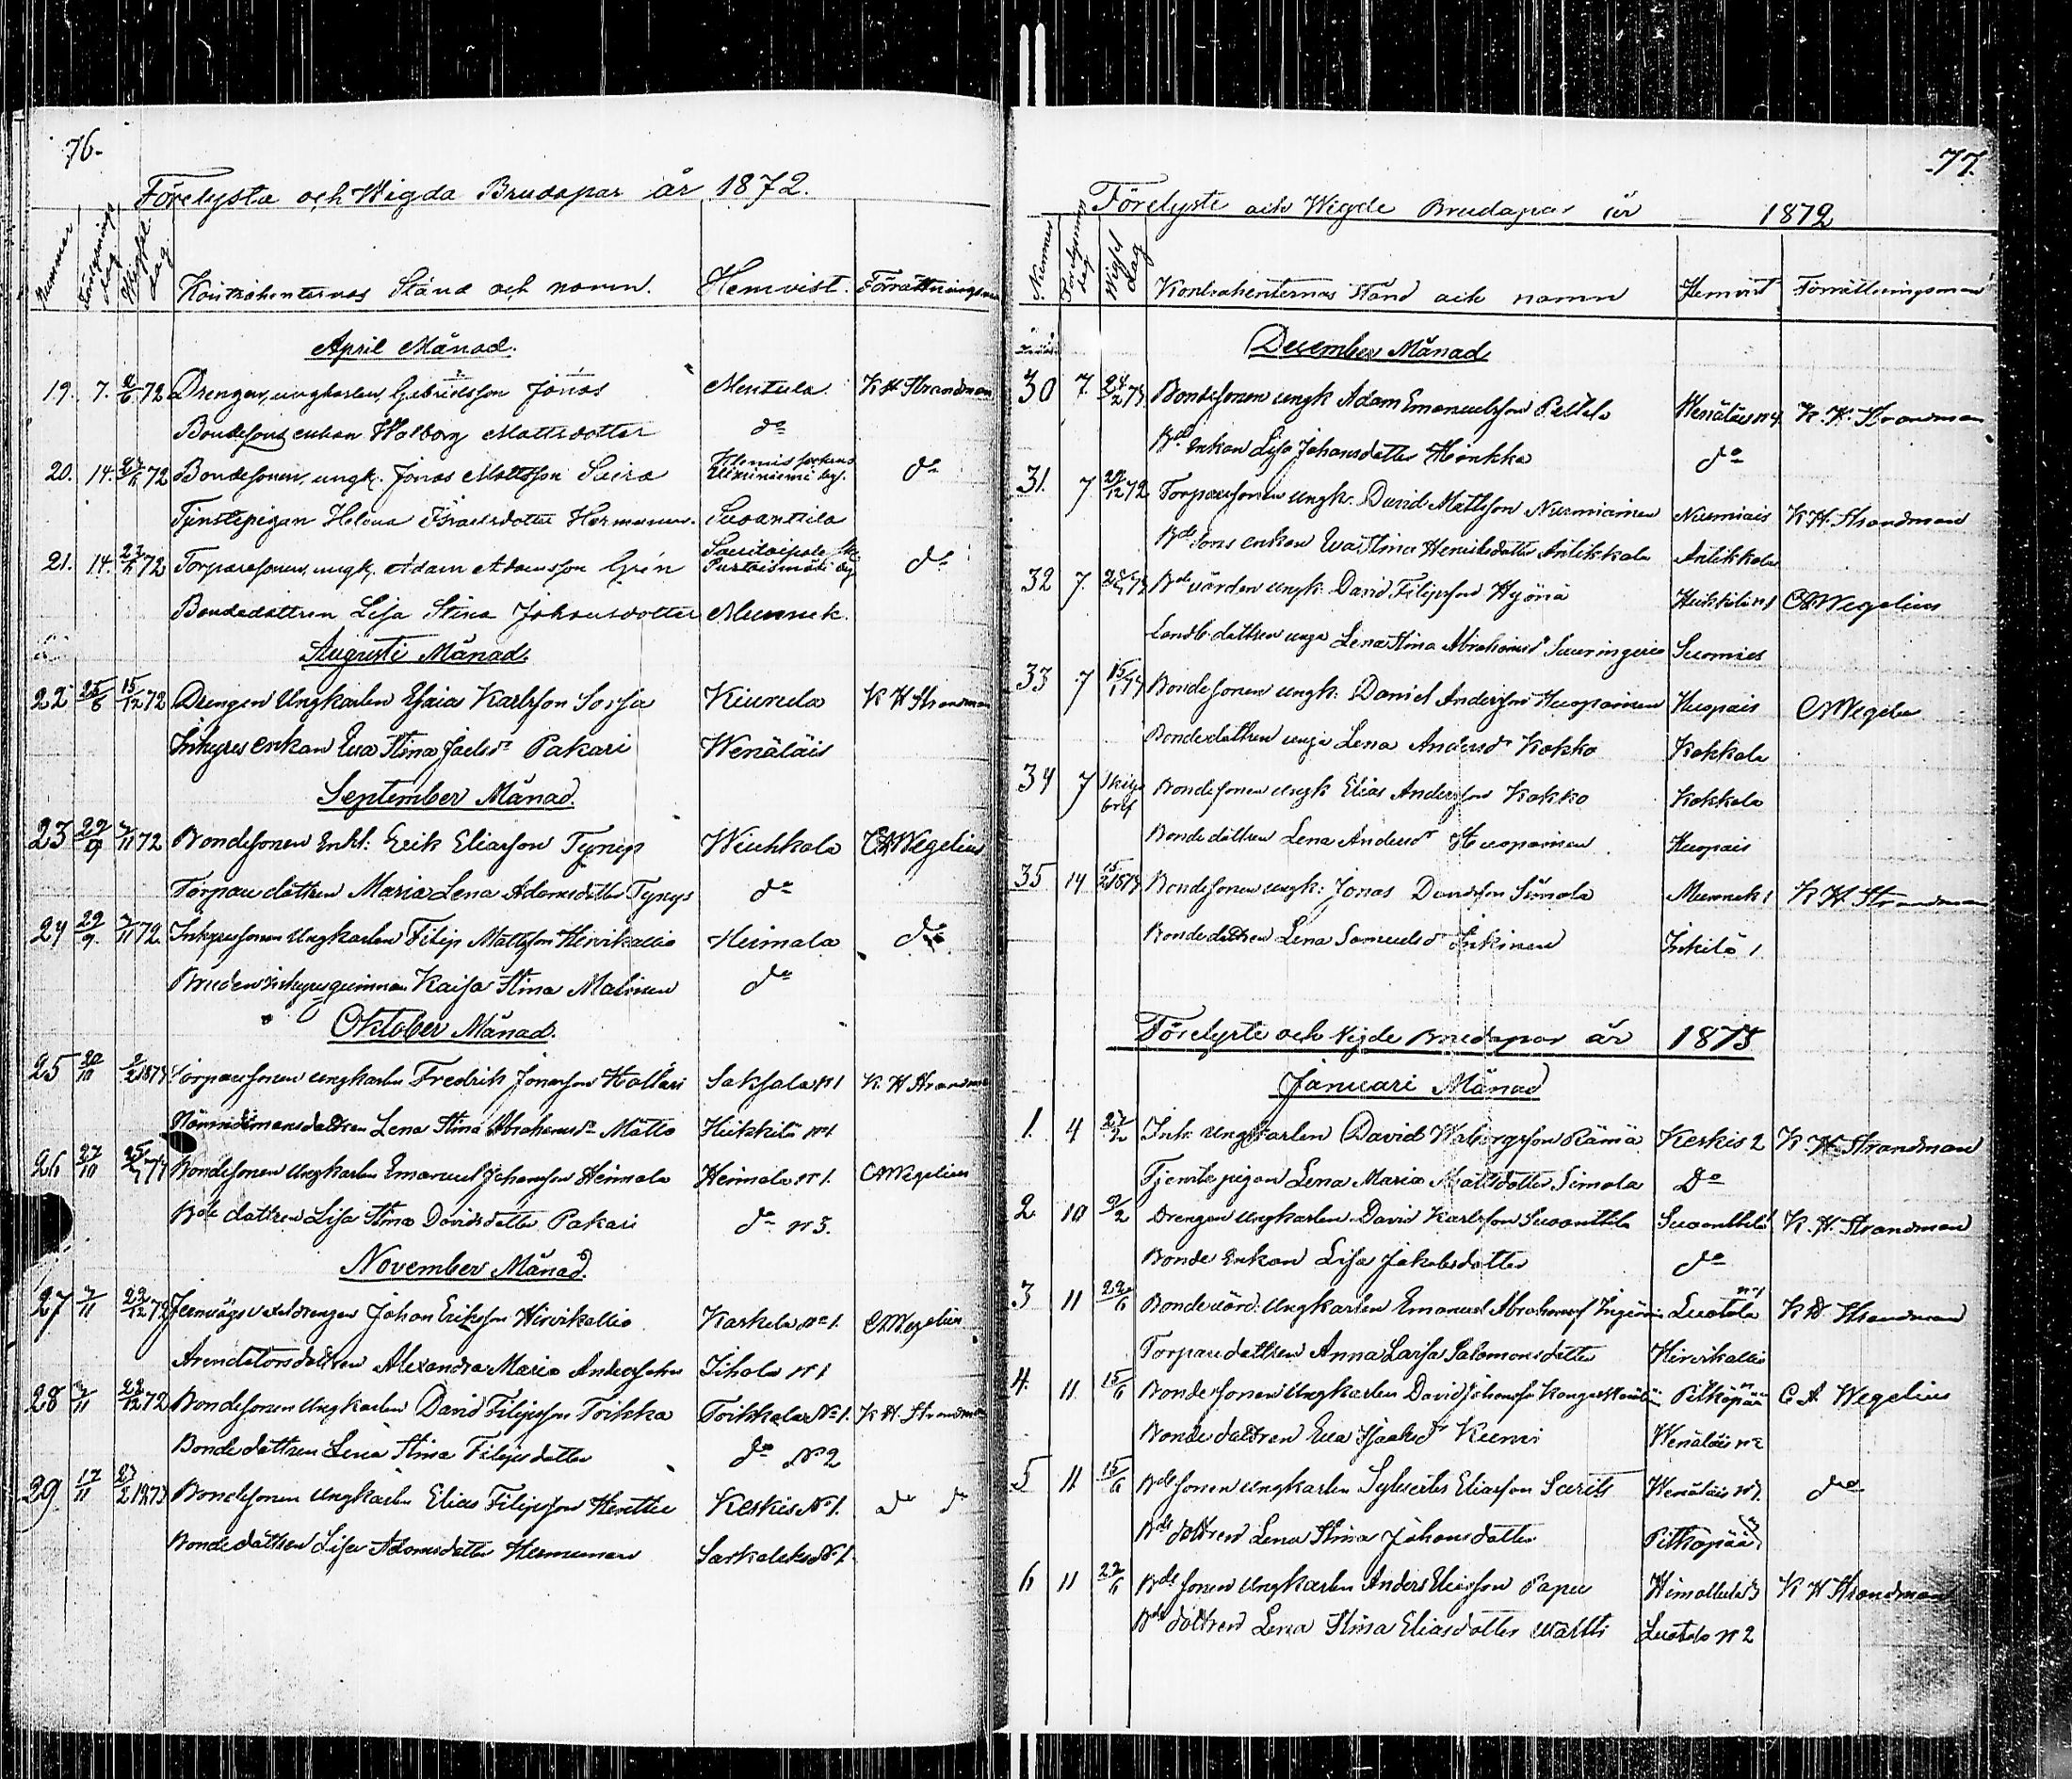 76.
Förelysta och Wigda Brudapar år 1872.
Nummer
Förelysnings dag
Wigsel dag
Kontrahenternas Stånd och namn.
Hemvist.
Förrättningsman
April Månad.
19. 7. 72 Drengen, ungkarlen, Gabrielsson Jonas Mentula. K H Strandman
Bondesons enkan Walborg Mattsdotter do
20. 14. 72 Bondesonen, ungk. Jonas Mattsson Saira do
Tjenstepigan Helena Israelsdotter Suoanttila
21. 14. 72 Torparesonen, ungk. Adam Adamsson Grén Savitaipale do
Bondedottren Lisa Stina Johansdotter Munnuk.
Augusti Månad.
22 25/8 15/12 72 Drengen Ungkarlen Esaias Karlsson Sorsa Kiurula K H Strandman
Inhyses enkan Eva Stina Joelsdr Pakari Wenäläis
September Månad.
23 22/9 7/11 72 Bondesonen Enkl: Erik Eliasson Tynys Wiuhkola CAWegelius
Torpare dottren Maria Lena Adamsdotter Tynys do
24 29/9. 7/11 72. Inhysessonen Ungkarlen Filip Mattsson Hirvikallio Heimala do
Bruden Inhysesqvinnan Kaisa Stina Malinen do
Oktober Månad.
25 20/10 2/2 1873 Torparesonen ungkarlen Fredrik Jonasson Hallari Saksala N1 K. H Strandman
Nämndemansdottren Lena Stina Abrahamsdr Mätto Heikkilä N1
26 27/10 73 Bondesonen Ungkarlen Emanuel Johansson Heimala Heimala N 1. CAWegelius
Bde dottren Lisa Stina Davidsdotter Pakari do N 3.
November Månad.
27 7/11 22/12 72 Jernvägs Johan Eriksson Hirvikallio Karhula No 1. CAWegelius
Arendatorsdottren Alexandra Maria Andersdotter Jihola N 1
28 22/12 72 Bondesonen Ungkarlen David Filipsson Toikka Toikkala No 1. K H Strandman
Bonde dottren Lena Stina Filipsdotter do No 2
29 17/11 1873 Bondesonen Ungkarlen Elias Filipsson Henttu Keskis No 1. do do
Bonde dottren Lisa Adamsdotter Sarkalaks No 1.
77.
Förelyste och Wigde Brudapar år 1872
Nummer
Förelysnings dag
Wigsel dag
Kontrahenternas Stånd och namn
Hemvist
Förrättningsman
December Månad
30 7. 73. Bondesonen ungk Adam Emanuelsson Peltola Wenäläis N 4 K. H. Strandman
Bde Enkan Lisa Johansdotter Honkka do
31. 7 72 Torparesonen ungk. David Mattsson Nurmiainen Nurmiais K H. Strandman
Bde Sons enkan Eva Stina Henriksdotter Anttikkala Anttikkala
32 7. 73 Bde värden ungk. David Filipsson Hyönä Heikkilä N 1 CAWegelius
Landb. dottren unga Lena Stina Abrahamsd Suomies
33 7 73 Bondesonen ungk: Daniel Andersson Huopainen Huopais CAWegelius
Bondedottren unga Lena Andersdr Kokko Kokkola
34 7 Skilje bref Bondesonen ungk Elias Andersson Kokko Kokkola
Bonde dottren Lena Andersdr Huopainen Huopais
35 14 1873 Bondesonen ungk: Jonas Davidsson Simola Munnuk 1 K H. Strandman
Bonde dottren Lena Samuelsdr Inkinen Inkilä 1.
Förelyste och Wigde Brudapar år 1873
Januari Månad
1. 4 Inh. Ungkarlen David Walborgsson Rämä Keskis 2 K. H. Strandman
Tjenstepigan Lena Maria Mattsdotter Simola Do
2 10 9/2 Drengen Ungkarlen David Karlsson Suoanttila Suoanttila K. H. Strandman
Bonde Enkan Lisa Jakobsdotter do
3 11 22/6 Bondevärd. Ungkarlen Emanuel Abrahamss Luotola K H Strandman
Torparedottren Anna Caisa Salomonsdotter Hirvikallio
4. 11. 15/6 Bondesonen Ungkarlen David Johanss Pitkäpää C A Wegelius
Bonde dottren Eva Isaaksdr Wenäläis N 2
5 11 15/6 Bdesonen Ungkarlen Sylvester Eliasson Wenäläis N 7. do
Bde dottren Lena Stina Johansdotter Pitkäpää
6 11 22/6 Bde sonen Ungkarlen Anders Eliasson Papu K H Strandman
Bde dottren Lena Stina Eliasdotter Waltti Luotola N 2